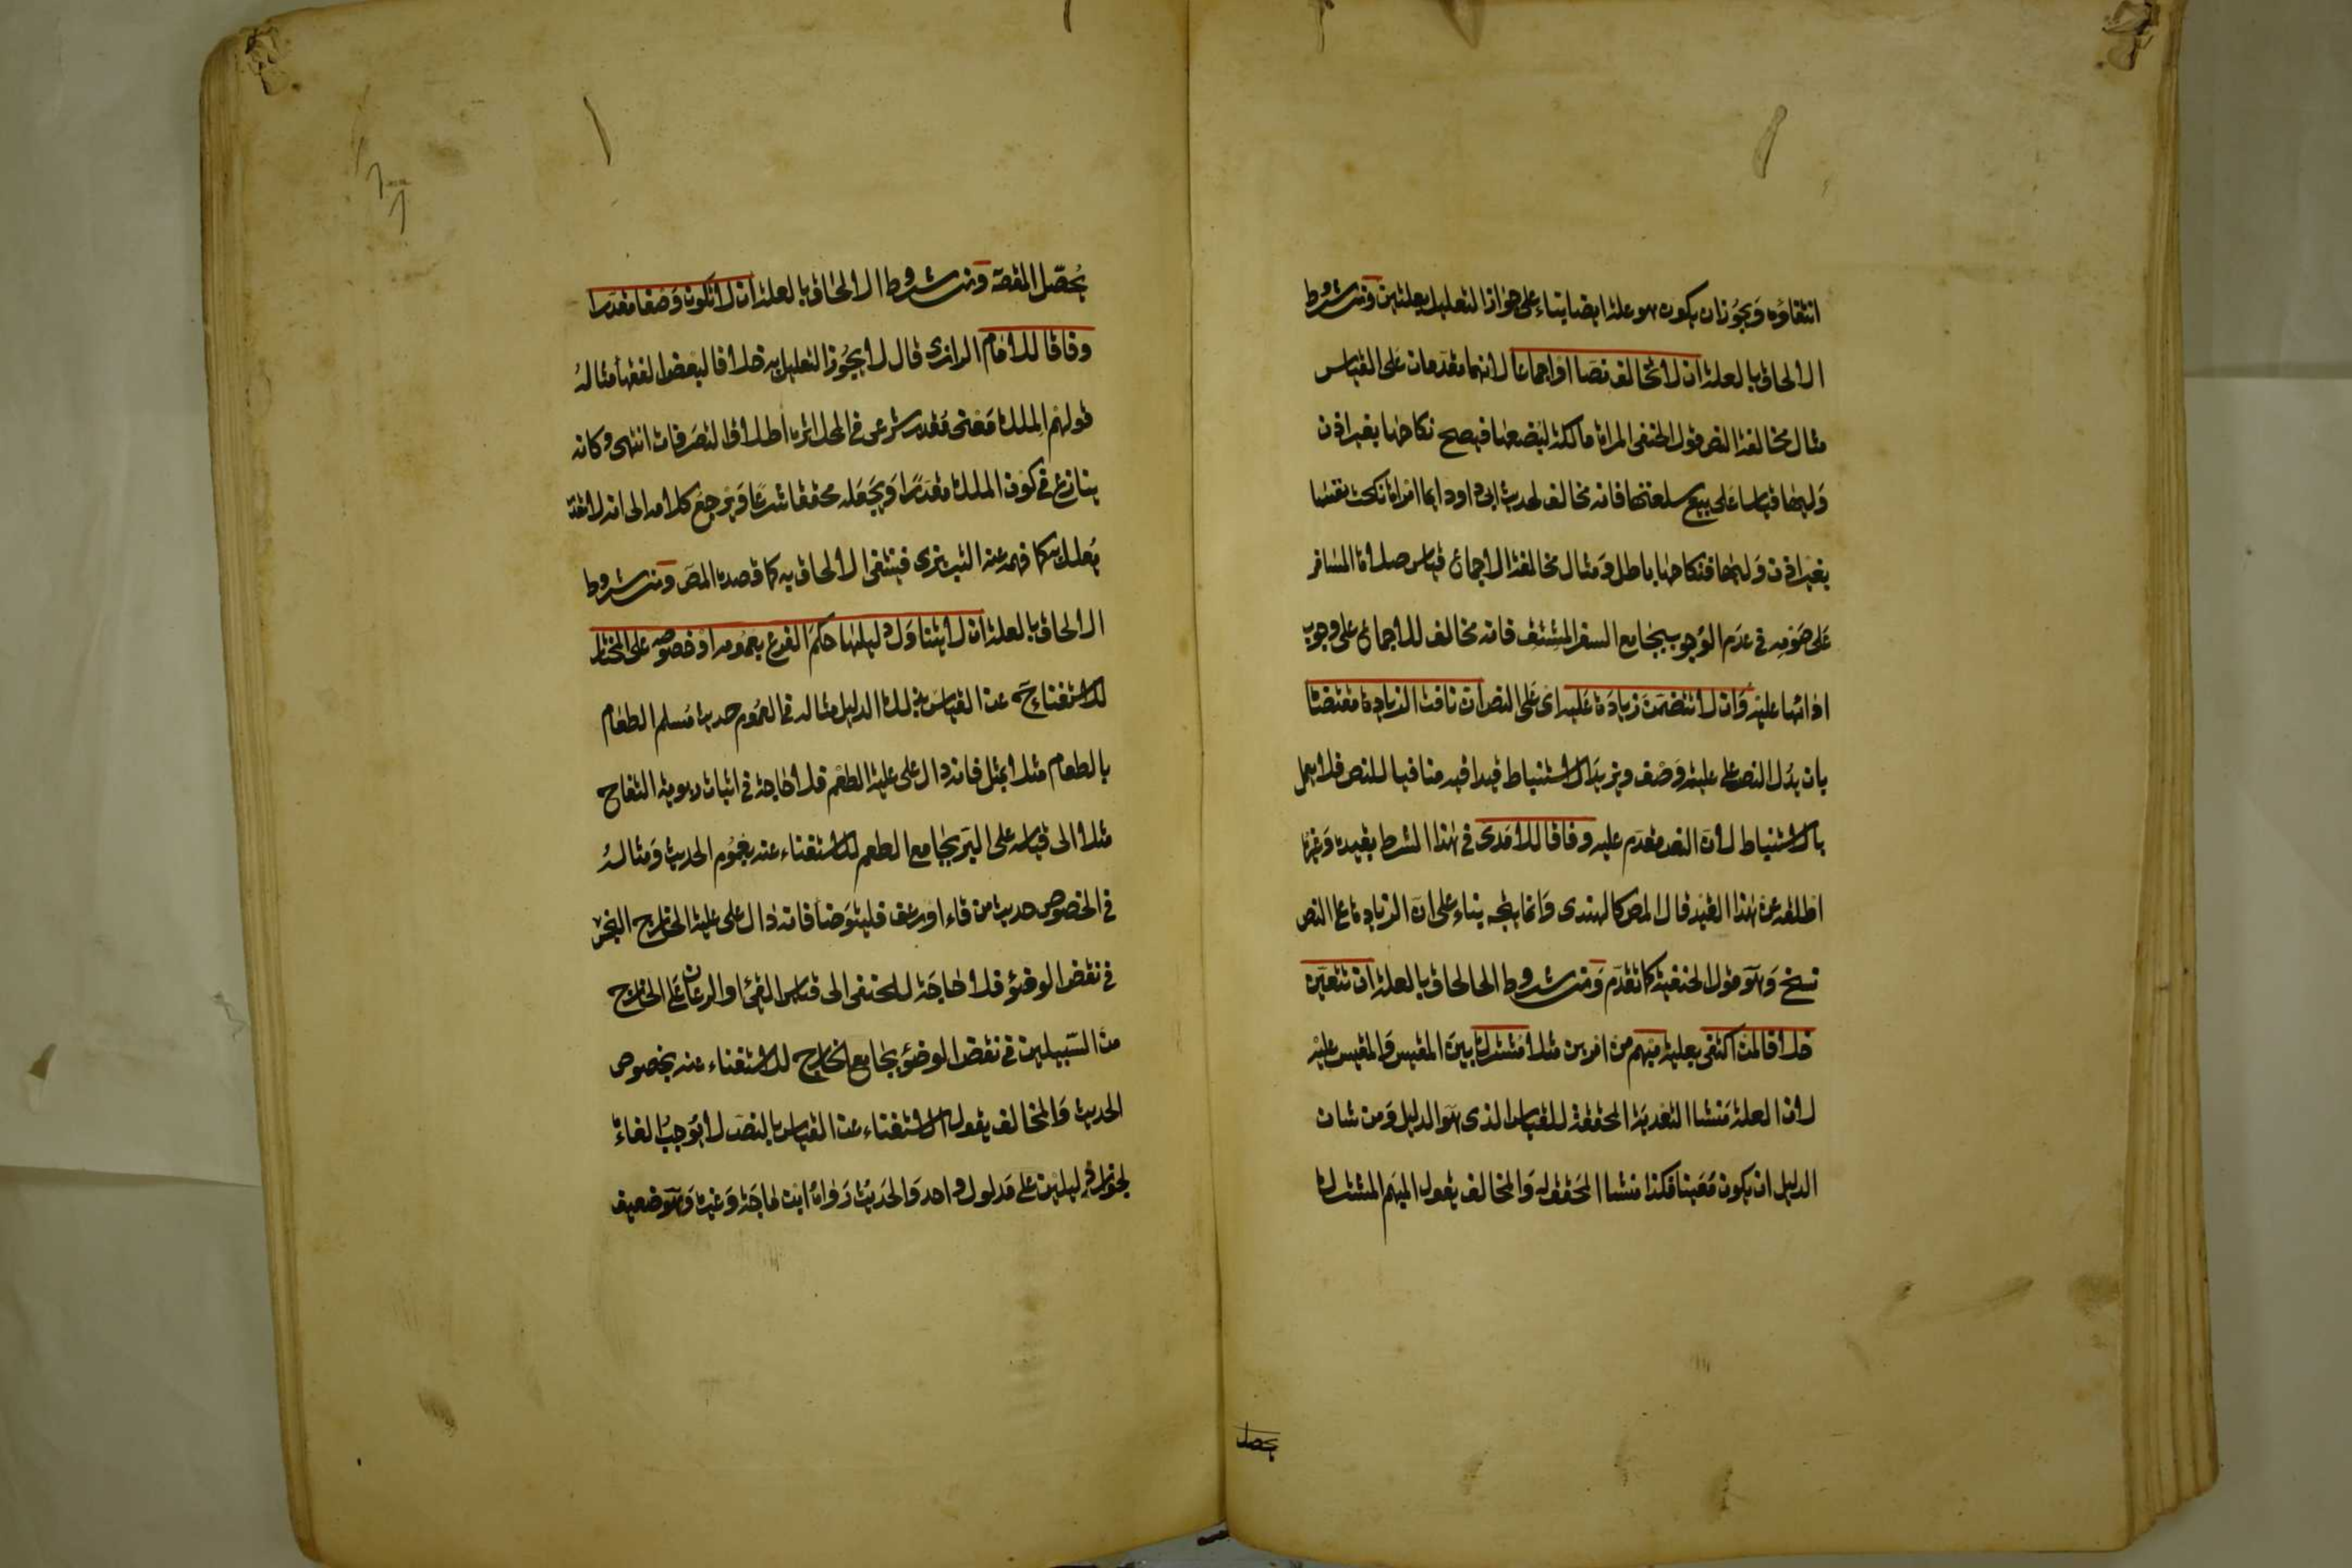 انتفاؤه ويجوز ان يكون هو علة ايضا بناء على جواز التعليل بعلتين ومن شروط
الالحاق بالعلة ان لا تخالف نصا او اجماعا لانهما مقدمان على القياس
مثال مخالفة النص قول الحنفي المراة مالكة لبضعها فيصح نكاحها بغير اذن
وليها قياسا على بيع سلعتها فانه مخالف لحديث ابى داود ايما امراة نكحت نفسها
بغير اذن وليها فنكاحها باطل ومثال مخالفة الاجماع قياس صلاة المسافر
على صومه في عدم الوجوب بجامع السفر المشتف فانه مخالف للاجماع على وجوب
ادائها عليه وان لا تتضمن زيادة عليه اى على النص ان نافت الزيادة مقتضاه
بان يدل النص على علية وصف ويزيد الاستنباط قيدا فيه منافيا للنص فلا يعمل
بالاستنباط لان النص مقدم عليه وفاقا للامدى في هذا الشرط بقيده وغيره
اطلقه عن هذا القيد قال المص كالهندى وانما يتجه بناء على ان الزيادة على النص
نسخ وهو قول الحنفية كما تقدم ومن شروط الحالحاق بالعلة ان تتعين
خلافا لمن اكتفى بعلية مبهم من امرين مثلا مشترك بين المقيس والمقيس عليه
لان العلة منشا التعدية المحققة للقياس الذى هو الدليل ومن شان
الدليل ان يكون معينا فكذا منشا المحقق له والمخالف يقول المبهم المشترك
يحصل
يحصل المقصة ومن شروط الالحاق بالعلة ان لا تكون وصفا مقدرا
وفاقا للامام الرازى قال لا يجوز التعليل به خلافا لبعض الفقها مثاله
قولهم الملك معنى مقدر شرعى في المحل اثره اطلاق التصرفات انتهى وكانه
ينازع في كون الملك مقدرا ويجعله محققا شرعا ويرجع كلامه الى انه لا مقدر
يعلل به كما فهمه عنه التبريزى فينتفى الالحاق به كما قصده المص ومن شروط
الالحاق بالعلة ان لا يتناول دليلها حكم الفرع بعمومه او خصوصه على المختار
للاستغناء ح عن القياس بذلك الدليل مثاله في العموم حديث مسلم الطعام
بالطعام مثلا بمثل فانه دال على علية الطعم فلا حاجة في اثبات ربوية التفاح
مثلا الى قياسه على البر بجامع الطعم للاستغناء عنه بعموم الحديث ومثاله
في الخصوص حديث من قاء او رعف فليتوضا فانه دال على علية الخارج النجس
في نقض الوضؤ فلا حاجة للحنفى الى قياس القئ او الرعاف على الخارج
من السبيلين في نقض الوضؤ بجامع الخارج للاستغناء عنه بخصوص
الحديث والمخالف يقول الاستغناء عن القياس بالنص لا يوجب الغاءه
لجواز دليلين على مدلول واحد والحديث رواه ابن ماجة وغيره وهو ضعيف